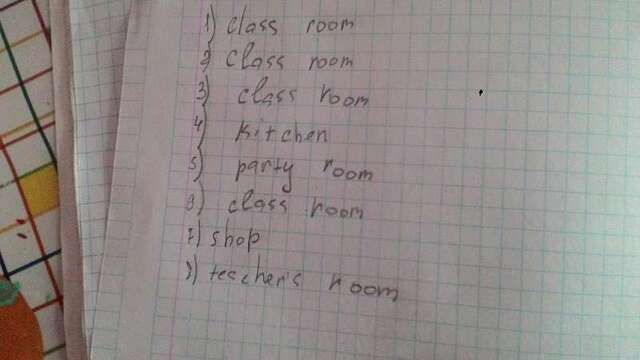 1) class room
2) class room
3) class room
4) kitchen
5) party room
6) class room
7) shop
8) teacher's room